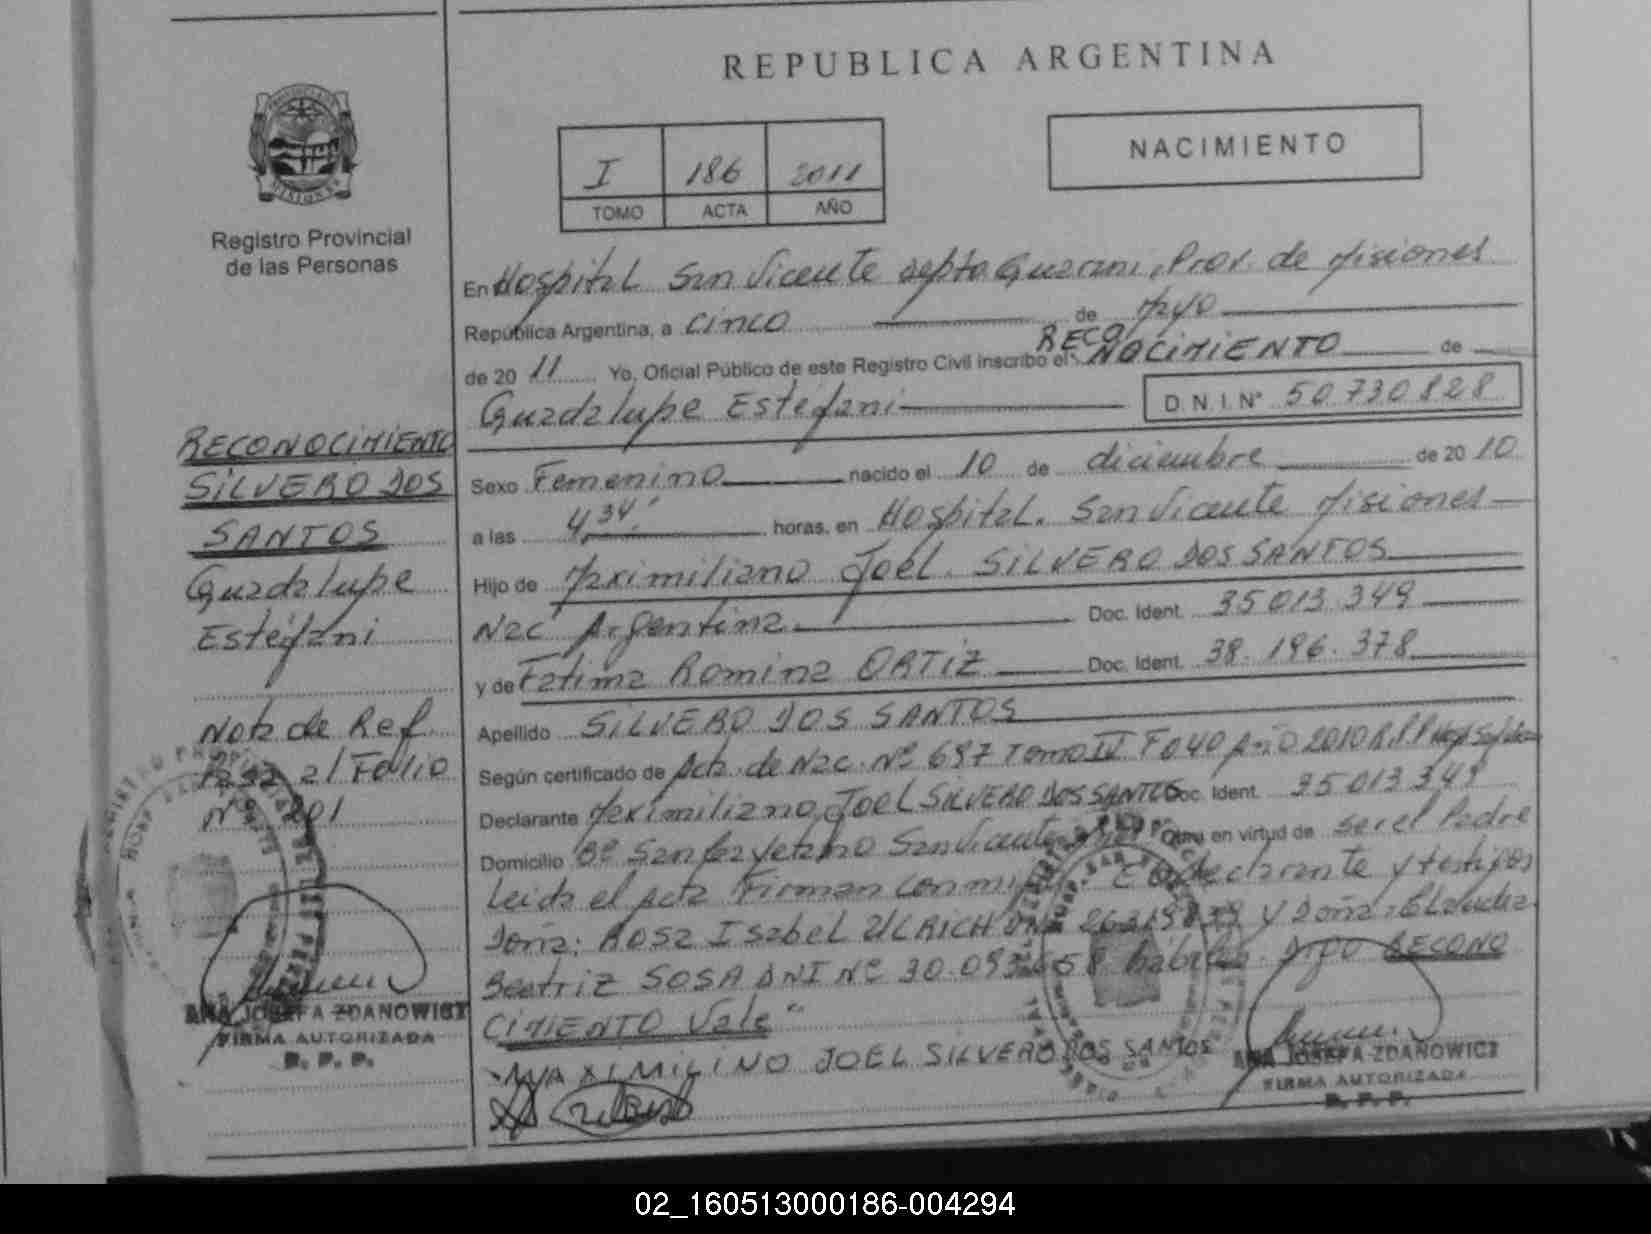 REPUBLICA ARGENTINA
NACIMIENTO
I 186 2011
TOMO ACTA AÑO
Registro Provincial
de las Personas
En Hospital San Vicente depto Guarani, Prov. de Misiones
República Argentina, a cinco de Mayo
de 20 11 Yo, Oficial Público de este Registro Civil inscribo el RECONOCIMIENTO de
Guadalupe Estefani D.N.I.N° 50.730.828
Sexo Femenino nacido el 10 de diciembre de 20 10
a las 4,34' horas, en Hospital San Vicente Misiones
Hijo de Maximiliano Joel SILVERO DOS SANTOS
Nac Argentina Doc. Ident. 35 013.349
y de Fatima Romina ORTIZ Doc. Ident. 38.196.378
Apellido SILVERO DOS SANTOS
Según certificado de Acta de Nac. Nº 697 Tomo IV Fº 40 Año 2010 R.P.P
Declarante Maximiliano Joel SILVERO DOS SANTOS Doc. Ident. 35 013 349
Domicilio Bº San Cayetano San Vicente Obra en virtud de ser el Padre
Leida el Acta Firman conmigo declarante y testigos
Doña: Rosa Isabel ULRICH y Doña: Claudia
Beatriz SOSA DNI Nº 30.093 habiles. RECONO
CIMIENTO Vale"
MAXIMILINO JOEL SILVERO DOS SANTOS
ANA JOSEFA ZDANOWICZ
FIRMA AUTORIZADA
R. P. P.
RECONOCIMIENTO
SILVERO DOS
SANTOS
Guadalupe
Estefani
Nota de Ref.
Pasa al Folio
nº 201
ANA JOSEFA ZDANOWICZ
FIRMA AUTORIZADA
R. P. P.
02_160513000186-004294